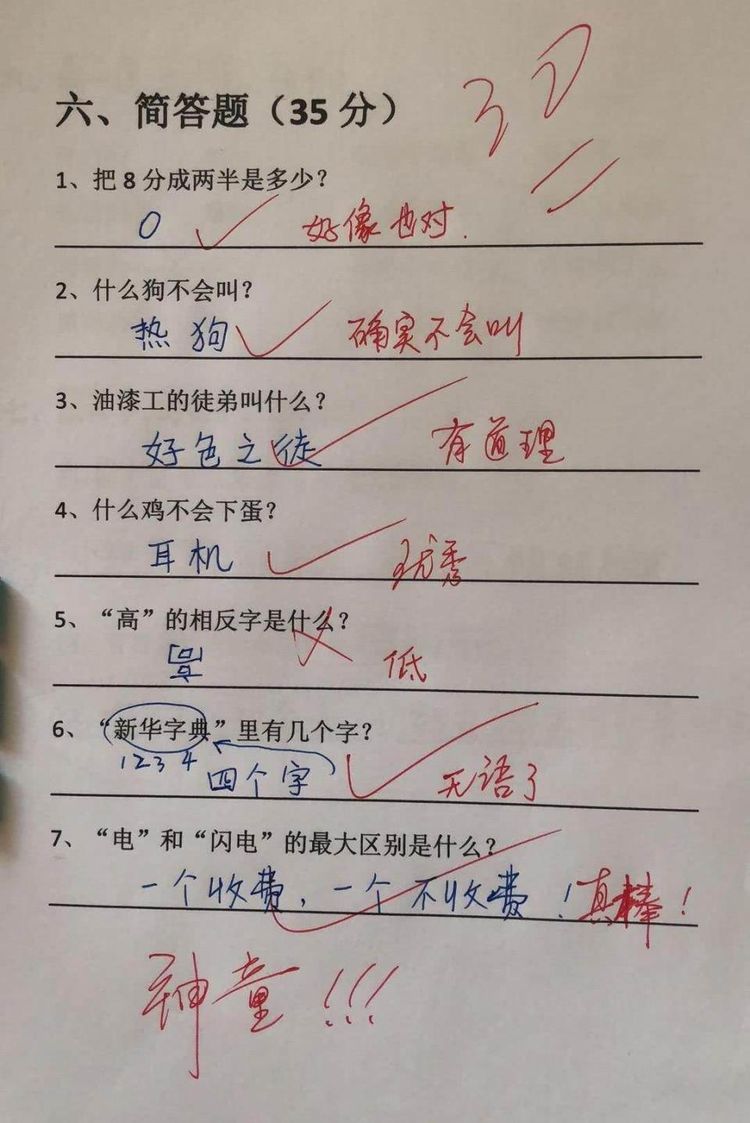 六、简答题（35 分）
30
1、把 8 分成两半是多少？
0 好像也对.
2、什么狗不会叫？
热狗 确实不会叫
3、油漆工的徒弟叫什么？
好色之徒 有道理
4、什么鸡不会下蛋？
耳机 优秀
5、“高”的相反字是什么？
低
6、“新华字典”里有几个字？
1234 四个字 无语了
7、“电”和“闪电”的最大区别是什么？
一个收费，一个不收费！真棒！
神童!!!